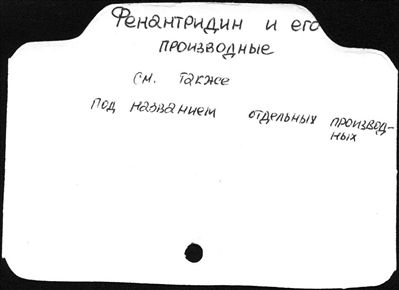 Фенантридин и его
производные
см. также
под названием отдельных производ-
ных